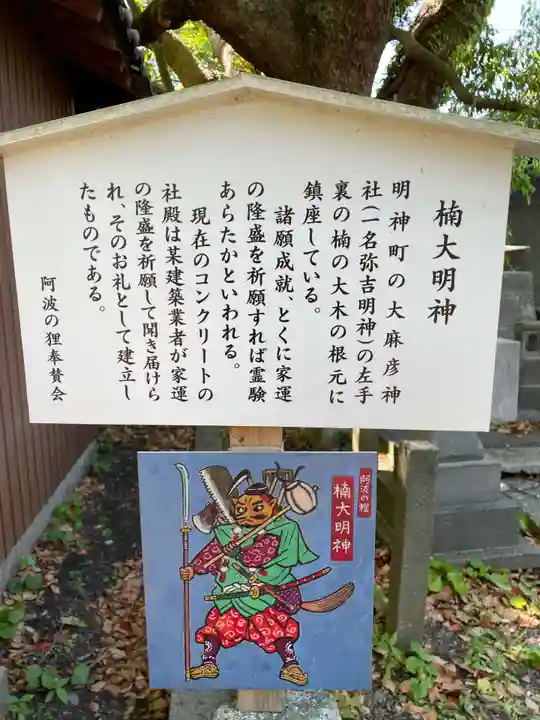 楠大明神
明神町の大麻彦神
社(一名弥吉明神)の左手
裏の楠の大木の根元に
鎮座している。
諸願成就、とくに家運
の隆盛を祈願すれば霊験
あらたかといわれる。
現在のコンクリートの
社殿は某建築業者が家運
の隆盛を祈願して聞き届けら
れ、そのお礼として建立し
たものである。
阿波の狸奉賛会
阿波の狸
楠大明神